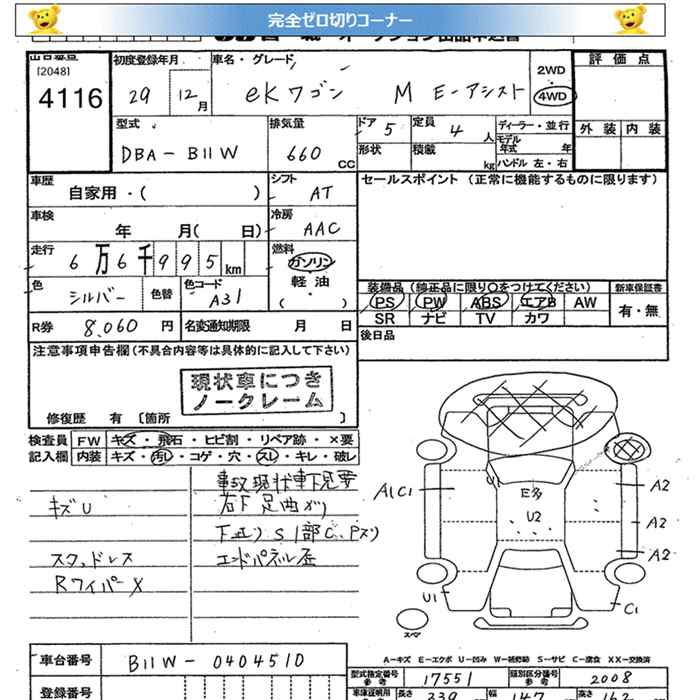 完全ゼロ切りコーナー
[2048]
4116
初度登録年月
29 12月
車名・グレード
eKワゴン M E-アシスト
2WD
4WD
評価点
外装 内装
型式
DBA-B11W
排気量
660 CC
ドア 5
形状
定員 4 人
積載 kg
ディーラー・並行
モデル年式 年
ハンドル 左・右
車歴
自家用・( )
シフト AT
車検
年 月( 日)
冷房 AAC
走行
6万6千995 km
燃料
ガソリン
軽油
( )
色
シルバー
色替
色コード
A31
R券 8,060 円
名変通知期限 月 日
セールスポイント (正常に機能するものに限ります)
装備品 (純正品に限り○をつけてください)
PS PW ABS エアB AW
SR ナビ TV カワ
新車保証書
有・無
後日品
注意事項申告欄(不具合内容等は具体的に記入して下さい)
現状車につき
ノークレーム
修復歴 有 [箇所 ]
検査員 FW キズ・飛石・ヒビ割・リペア跡・×要
記入欄 内装 キズ・汚レ・コゲ・穴・スレ・キレ・破レ
事故現状車下見要
キズU
右下足曲がり
下廻り S 1部C、Pズリ
スタッドレス
エンドパネル歪
Rワイパー X
A1 C1
U1
E多
U2
A2
A2
A2
U1
C1
スペア
A-キズ E-エクボ U-凹み W-補修跡 S-サビ C-腐食 XX-交換済
車台番号 B11W-0404510
登録番号
型式指定番号 参考 17551
類別区分番号 参考 2008
長さ 339 幅 147 高さ 162